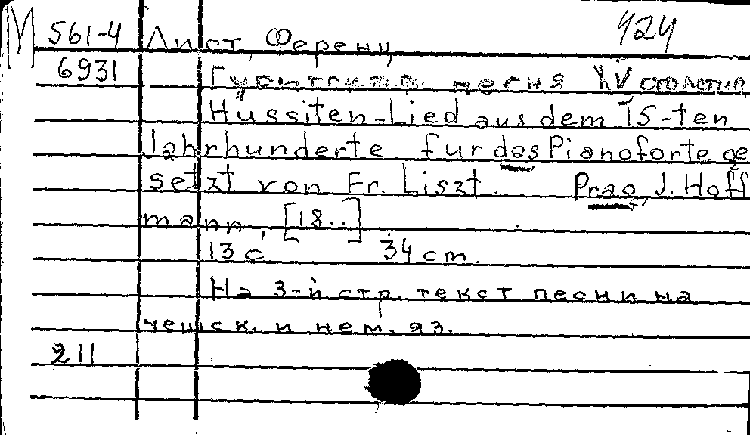 М 561-4 Лист, Ференц 424
6931 Гуситская песня XV столетия
Hussiten-Lied aus dem 15-ten
Jahrhunderte für das Pianoforte ge
setzt von Fr. Liszt. Prag, J. Hoff
mann, [18..]
13 с. 34 cm.
На 3-й стр. текст песни на
чешск. и нем. яз.
211